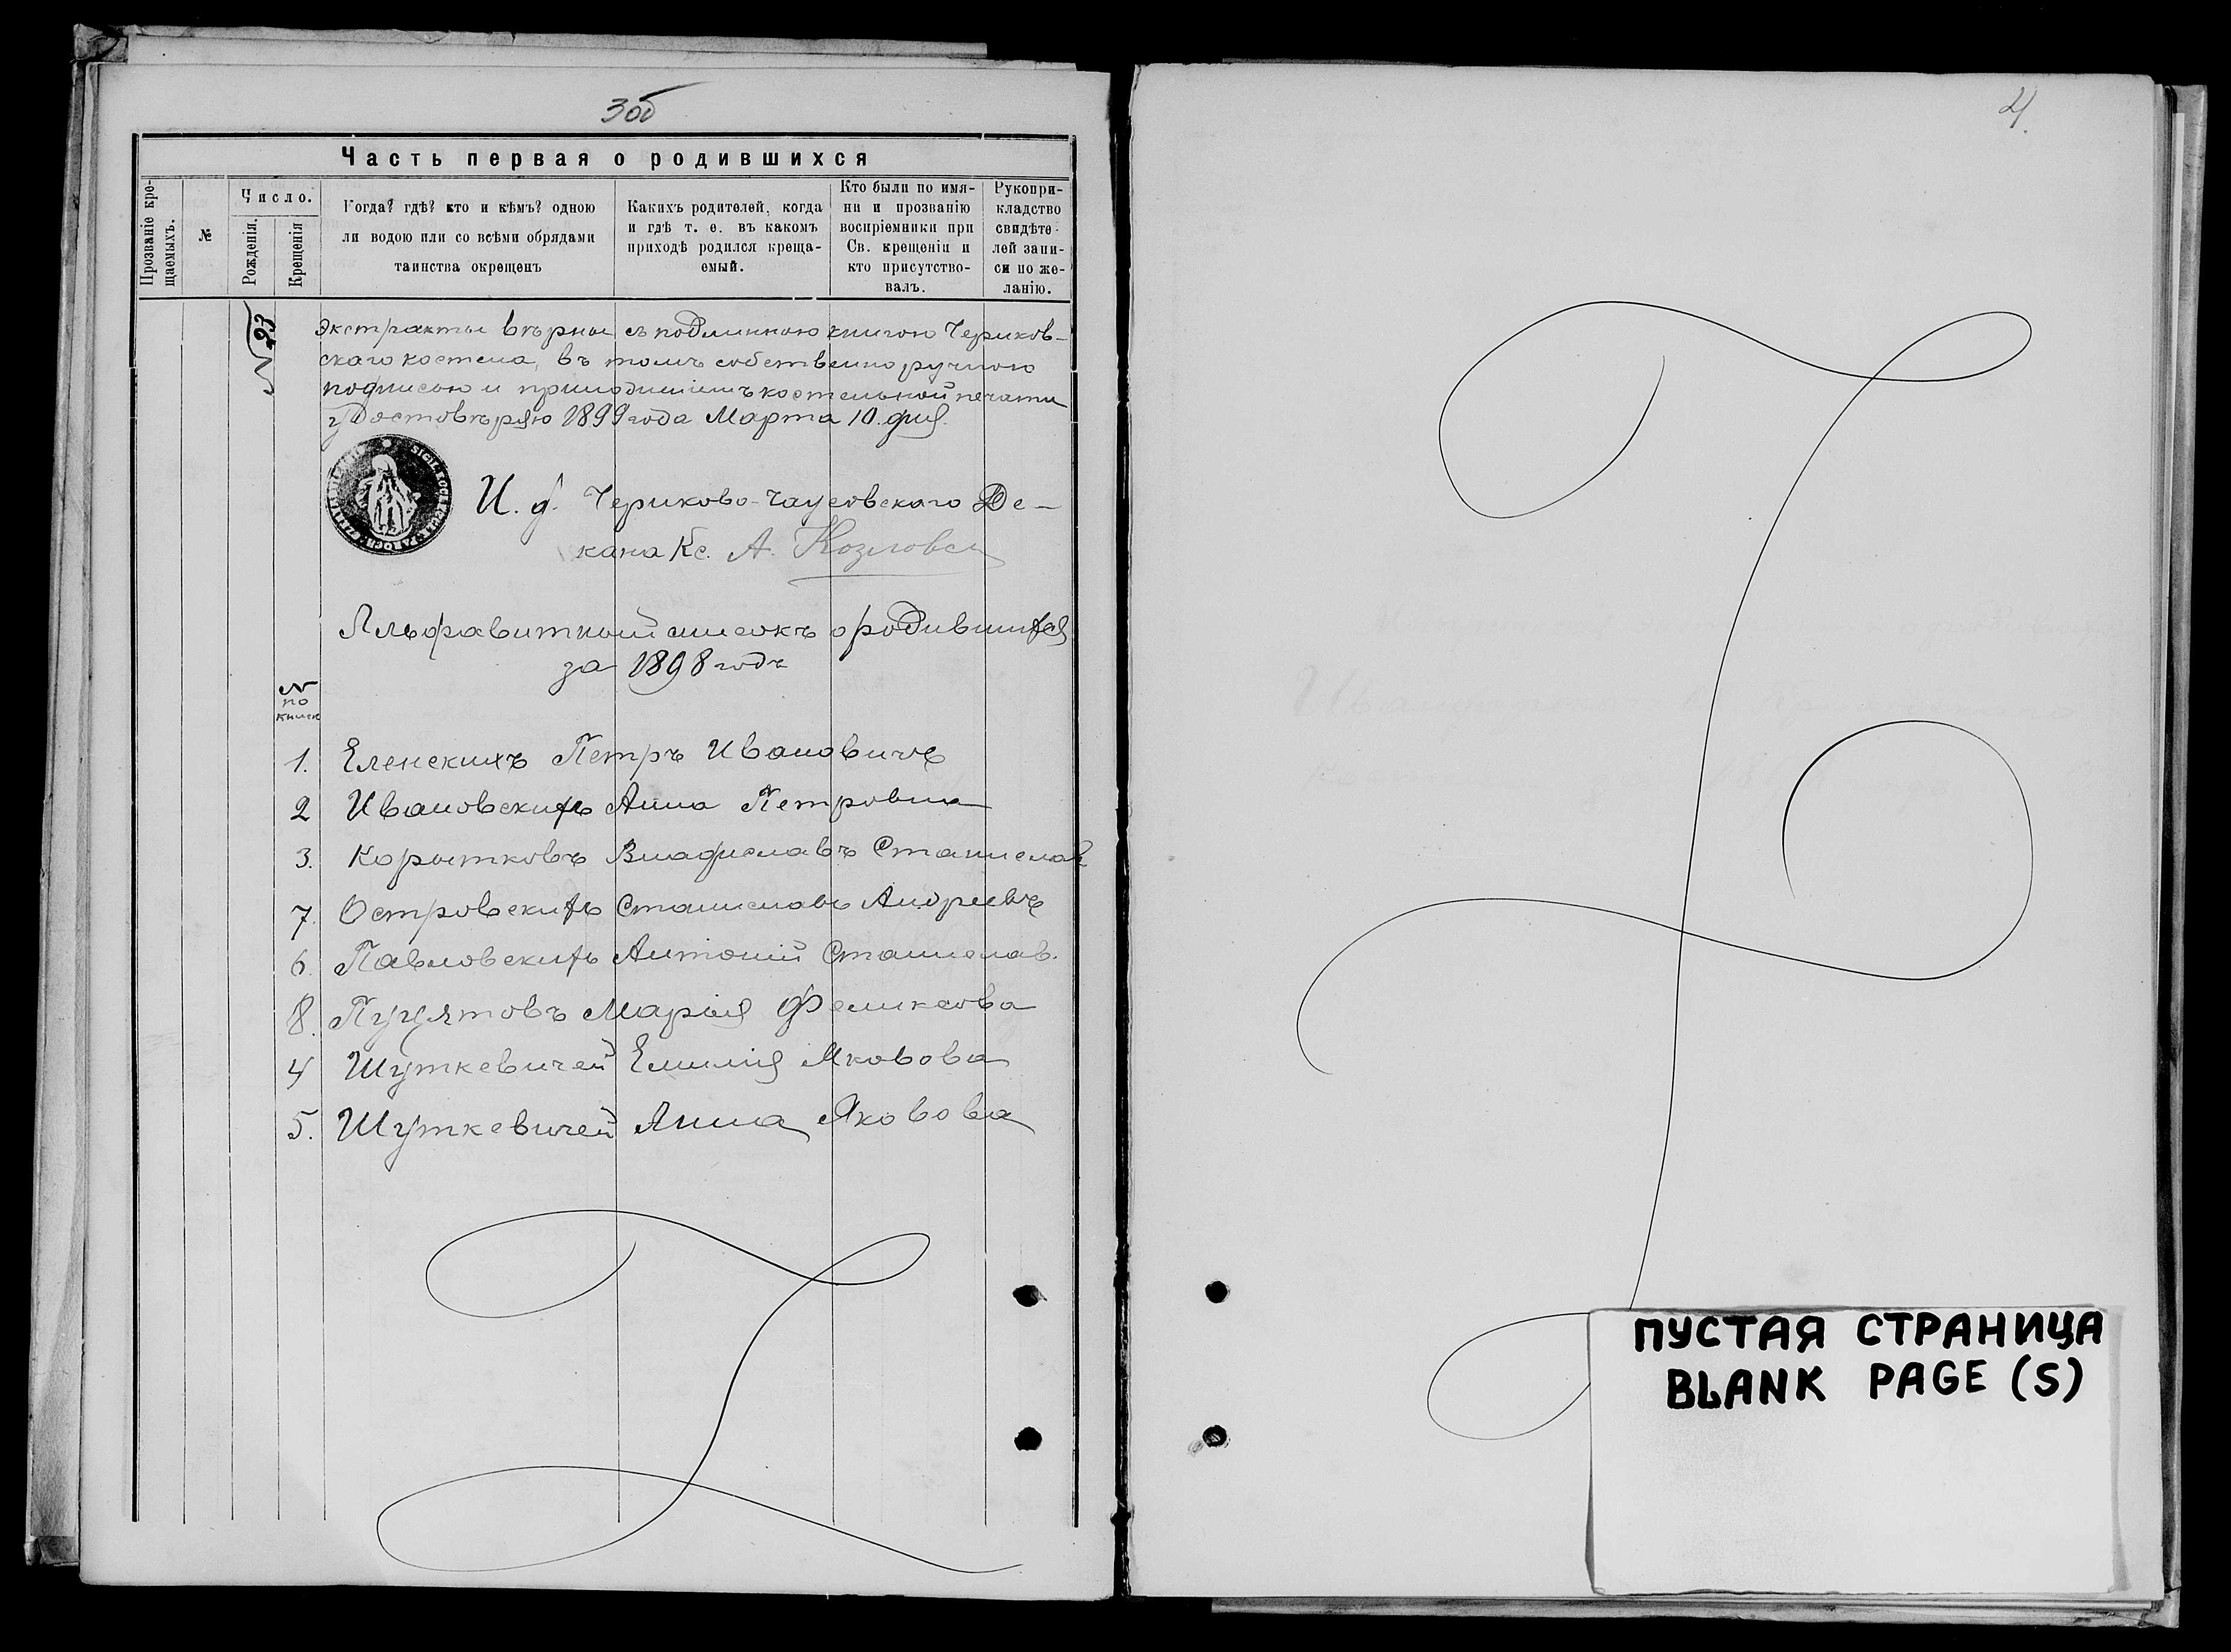 3об
Часть первая о родившихся
Прозваніе кре-
щаемыхъ.
№
Число.
Рожденія.
Крещенія
Когда? гдѣ? кто и кѣмъ? одною
ли водою или со всѣми обрядами
таинства окрещенъ
Какихъ родителей, когда
и гдѣ т. е. въ какомъ
приходѣ родился креща-
емый.
Кто были по имя-
ни и прозванію
воспріемники при
Св. крещеніи и
кто присутство-
валъ.
Рукопри-
кладство
свидѣте-
лей запи-
си по же-
ланію.
№ 23
Экстракты вѣрны съ подлинною книгою Чериков-
скаго костела, въ томъ собственно ручною
подписью и костельной печати
удостовѣряю 1899 года Марта 10. дня.
И. д. Чериково-Чаусовскаго Де-
кана Кс. А. Козловск
Альфавитный списокъ о родившихся
за 1898 годъ
N
по
книгѣ
1. Еленскихъ Петръ Ивановичъ
2 Ивановскихъ Анна Петровна
3. Коротковъ Владиславъ Станислав
7. Островскихъ Станиславъ Андреевъ
6. Павловскихъ Антоній Станислав.
8. Пуцятовъ Марія Феликсова
4 Шуткевичей Емилія Яковова
5. Шуткевичей Анна Яковова
4.
ПУСТАЯ СТРАНИЦА
BLANK PAGE (S)